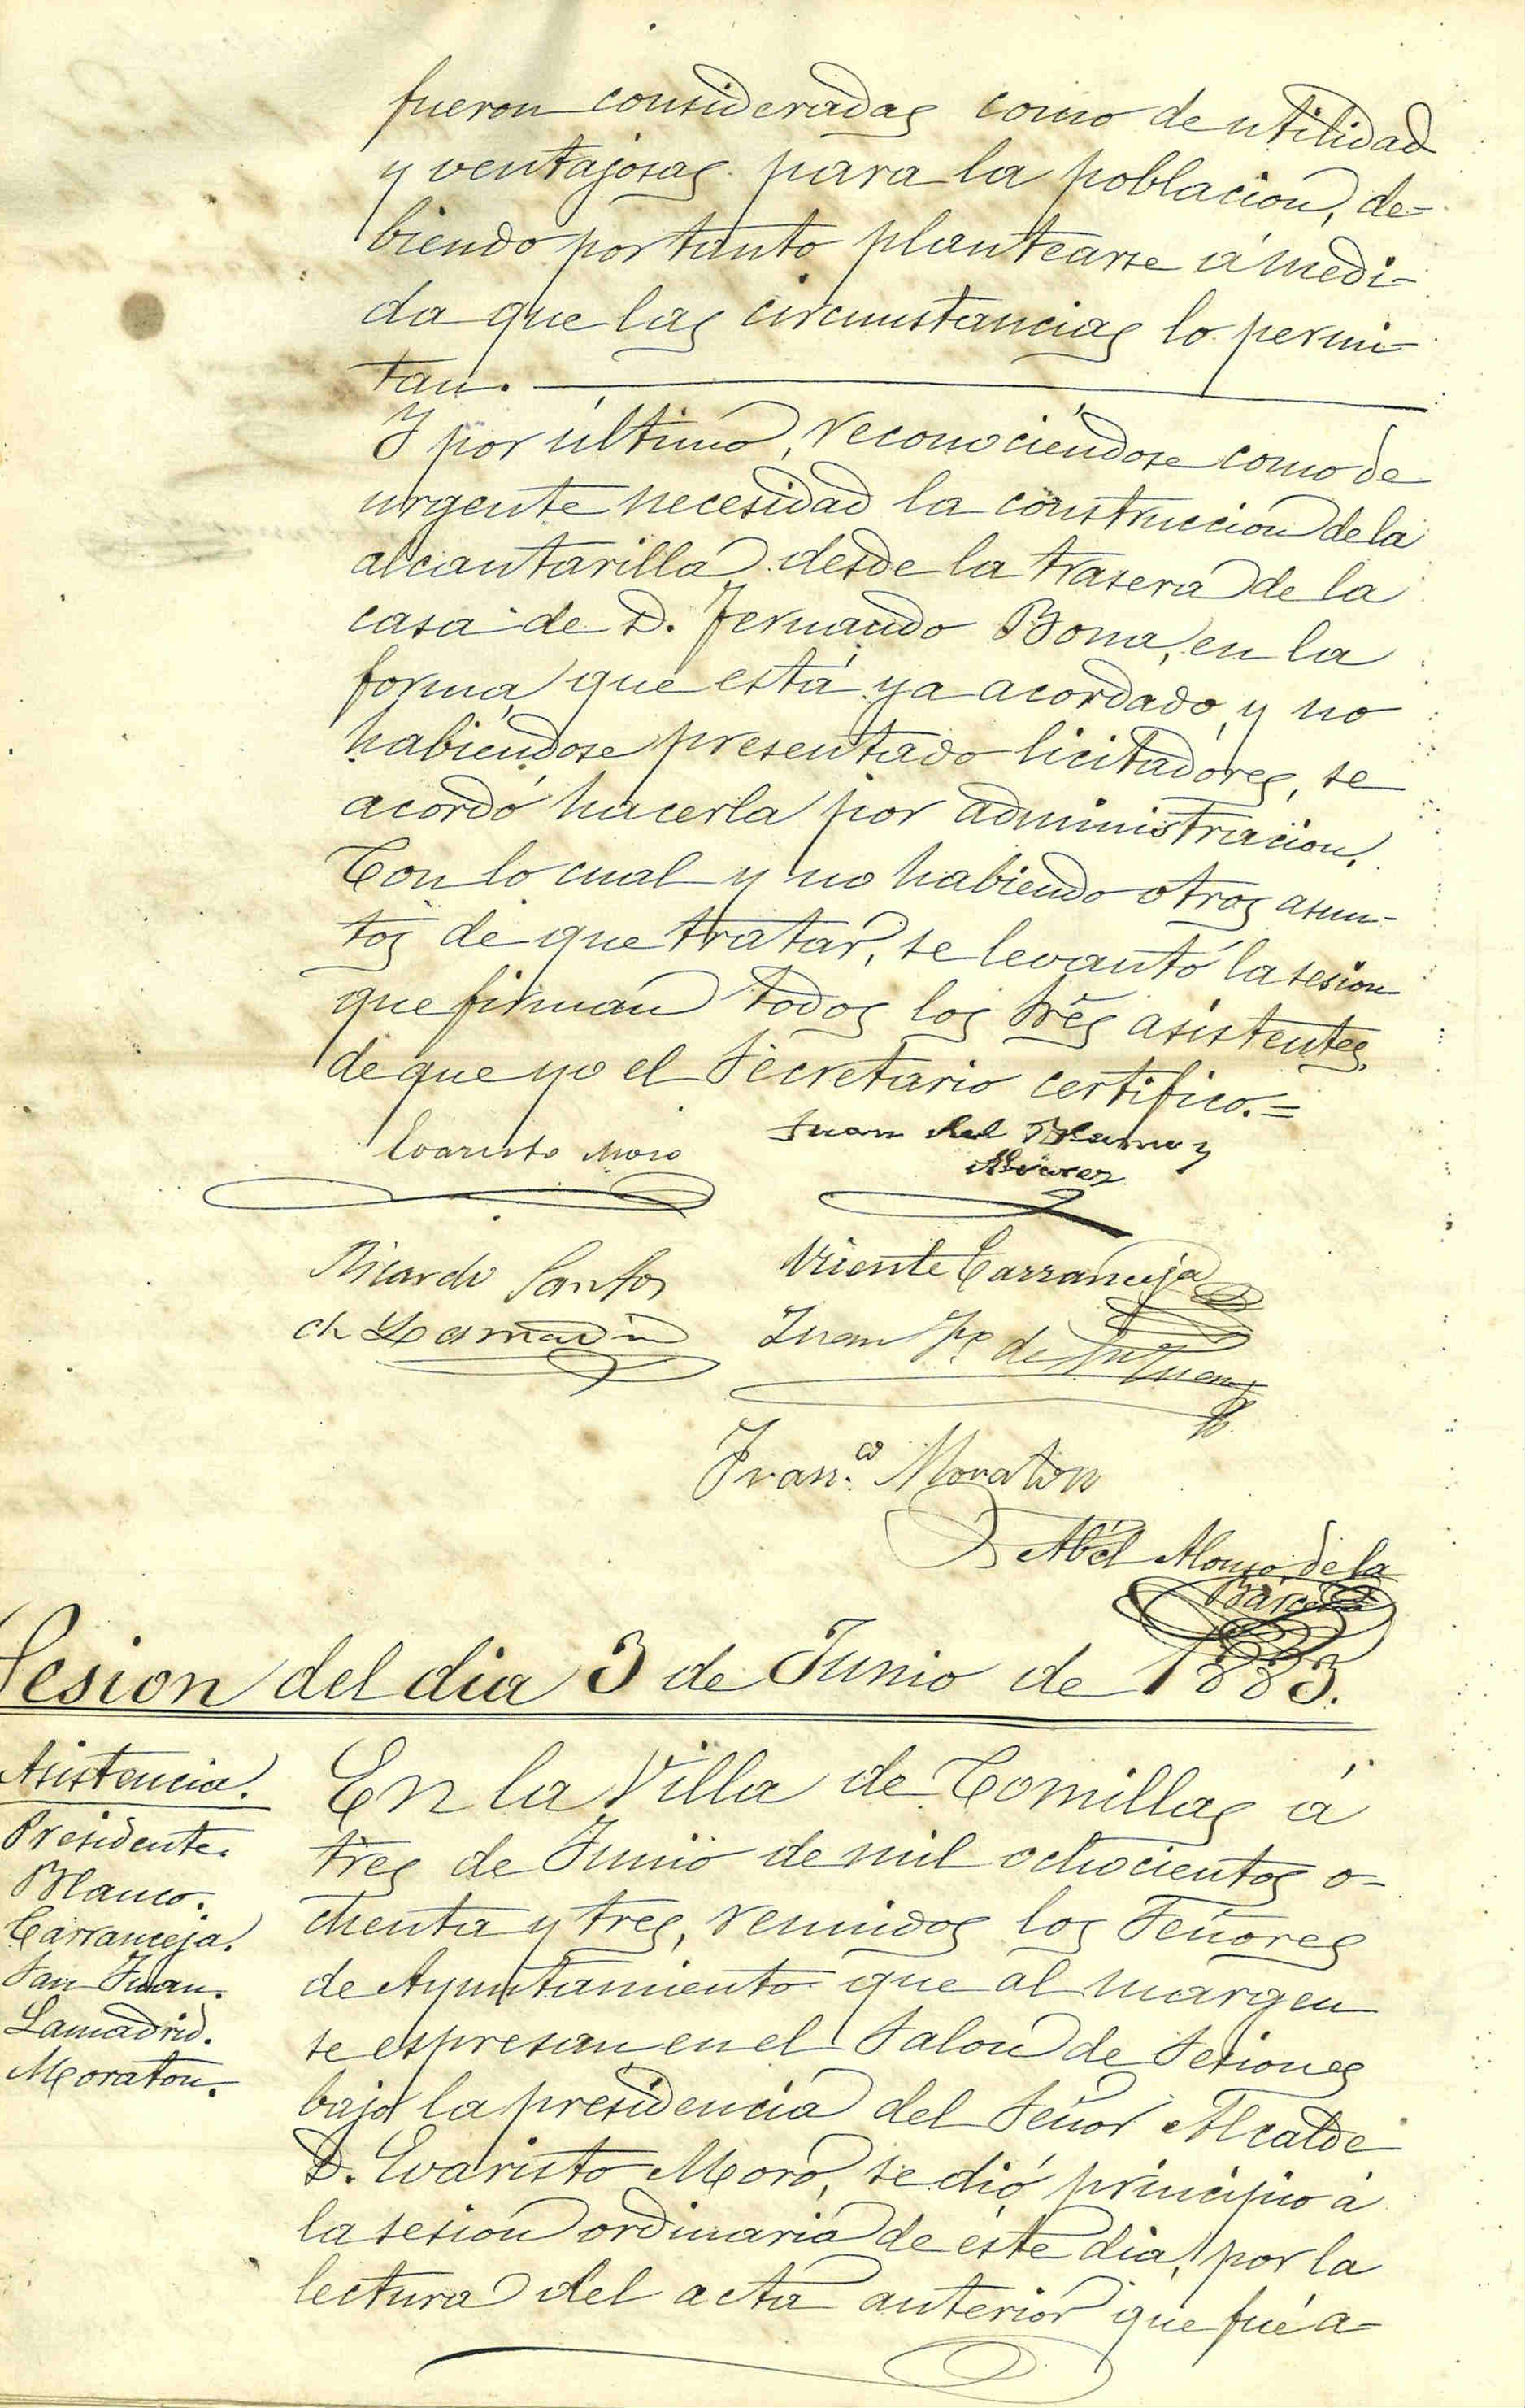 fueron consideradas como de utilidad
y ventajosas para la poblacion, de-
biendo por tanto plantearse á medi-
da que las circunstancias lo permi-
tan.
Y por último, reconociéndose como de
urgente necesidad la construccion de la
alcantarilla desde la trasera de la
casa de D. Fernando Bona, en la
forma que está ya acordado, y no
habiéndose presentado licitadores, se
acordó hacerla por administracion.
Con lo cual y no habiendo otros asun-
tos de que tratar, se levantó la sesion
que firman todos los Sres asistentes,
de que yo el Secretario certifico.=
Evaristo Moro
Juan del Blanco y
Ricardo Santos
de Lamadrid
Vicente Carranceja
Juan Fº de Sn Juan
Franco Moraton
Abél Alonso de la
Bárcena
Sesion del dia 3 de Junio de 1883.
Asistencia.
Presidente.
Blanco.
Carranceja.
San Juan.
Lamadrid.
Moraton.
En la Villa de Comillas á
tres de Junio de mil ochocientos o-
chenta y tres, reunidos los Señores
de Ayuntamiento que al margen
se espresan en el Salon de Sesiones
bajo la presidencia del Señor Alcalde
D. Evaristo Moro, se dió principio á
la sesion ordinaria de este dia, por la
lectura del acta anterior que fué a-